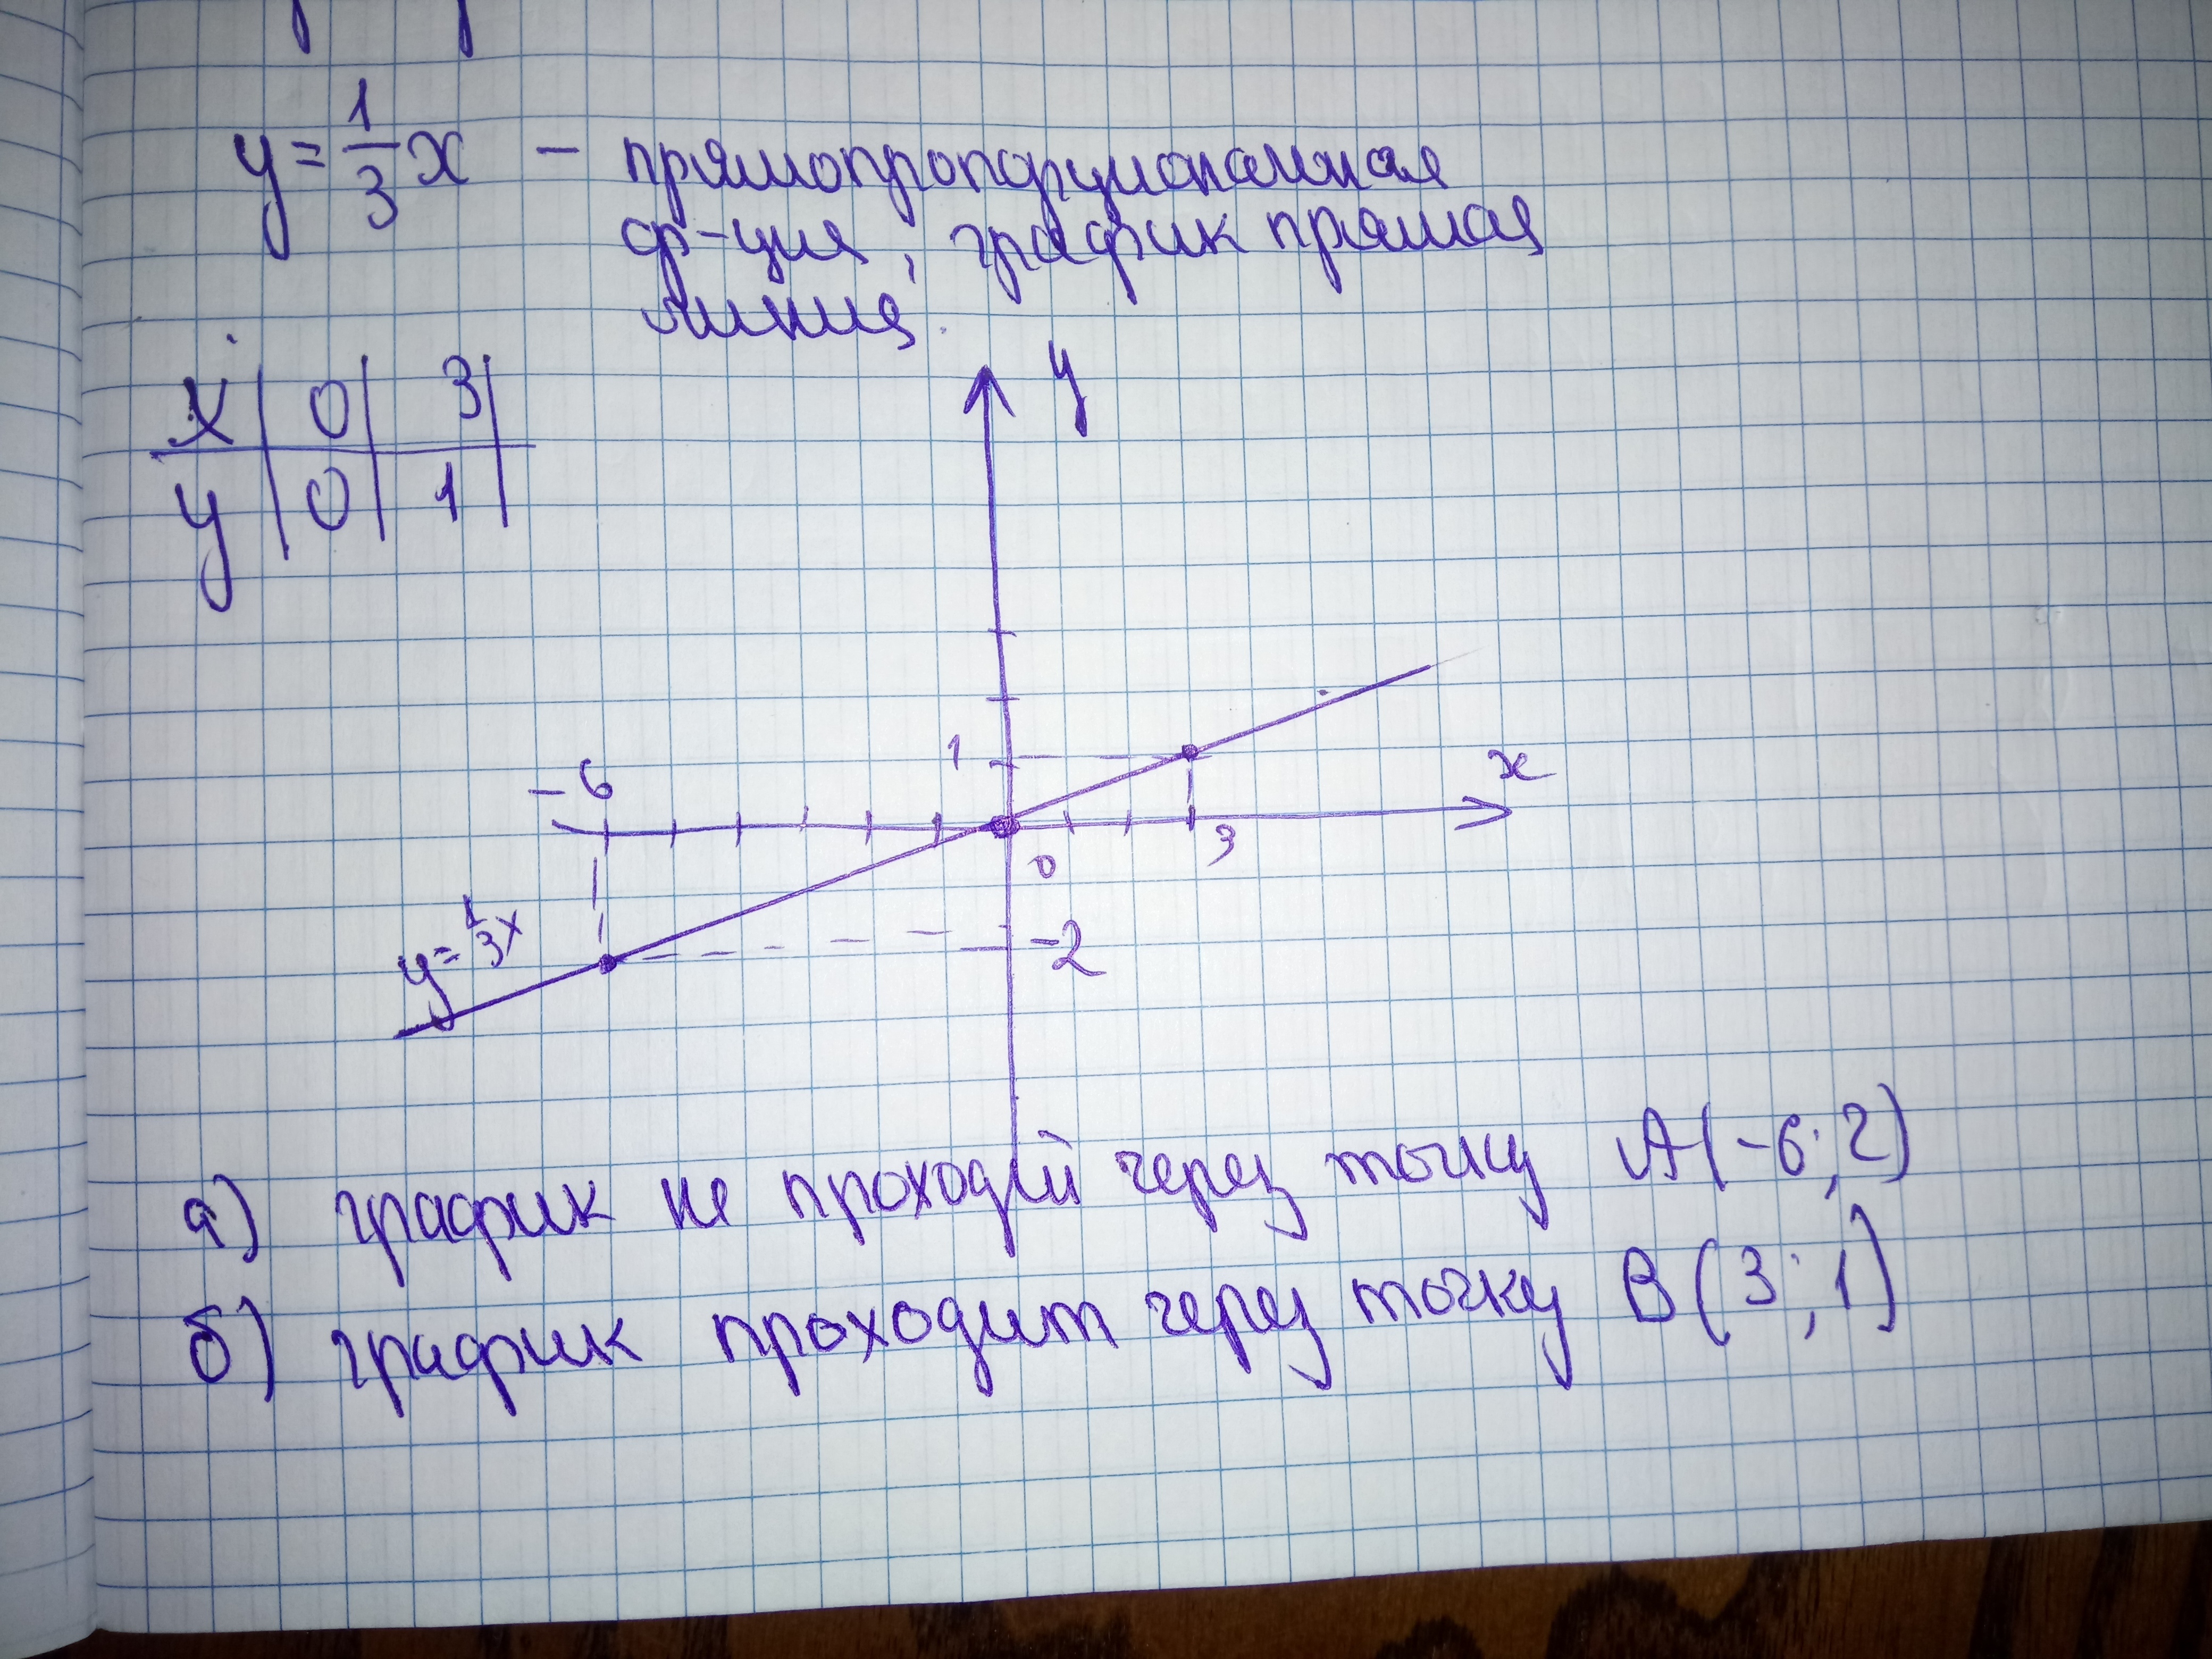 y = 1/3 x – прямопропорциональная
ф-ция, график прямая
линия.
x | 0 | 3 |
y | 0 | 1 |
y
1
-6
x
0
3
y = 1/3 x
-2
а) график не проходит через точку A(-6; 2)
б) график проходит через точку B(3; 1)